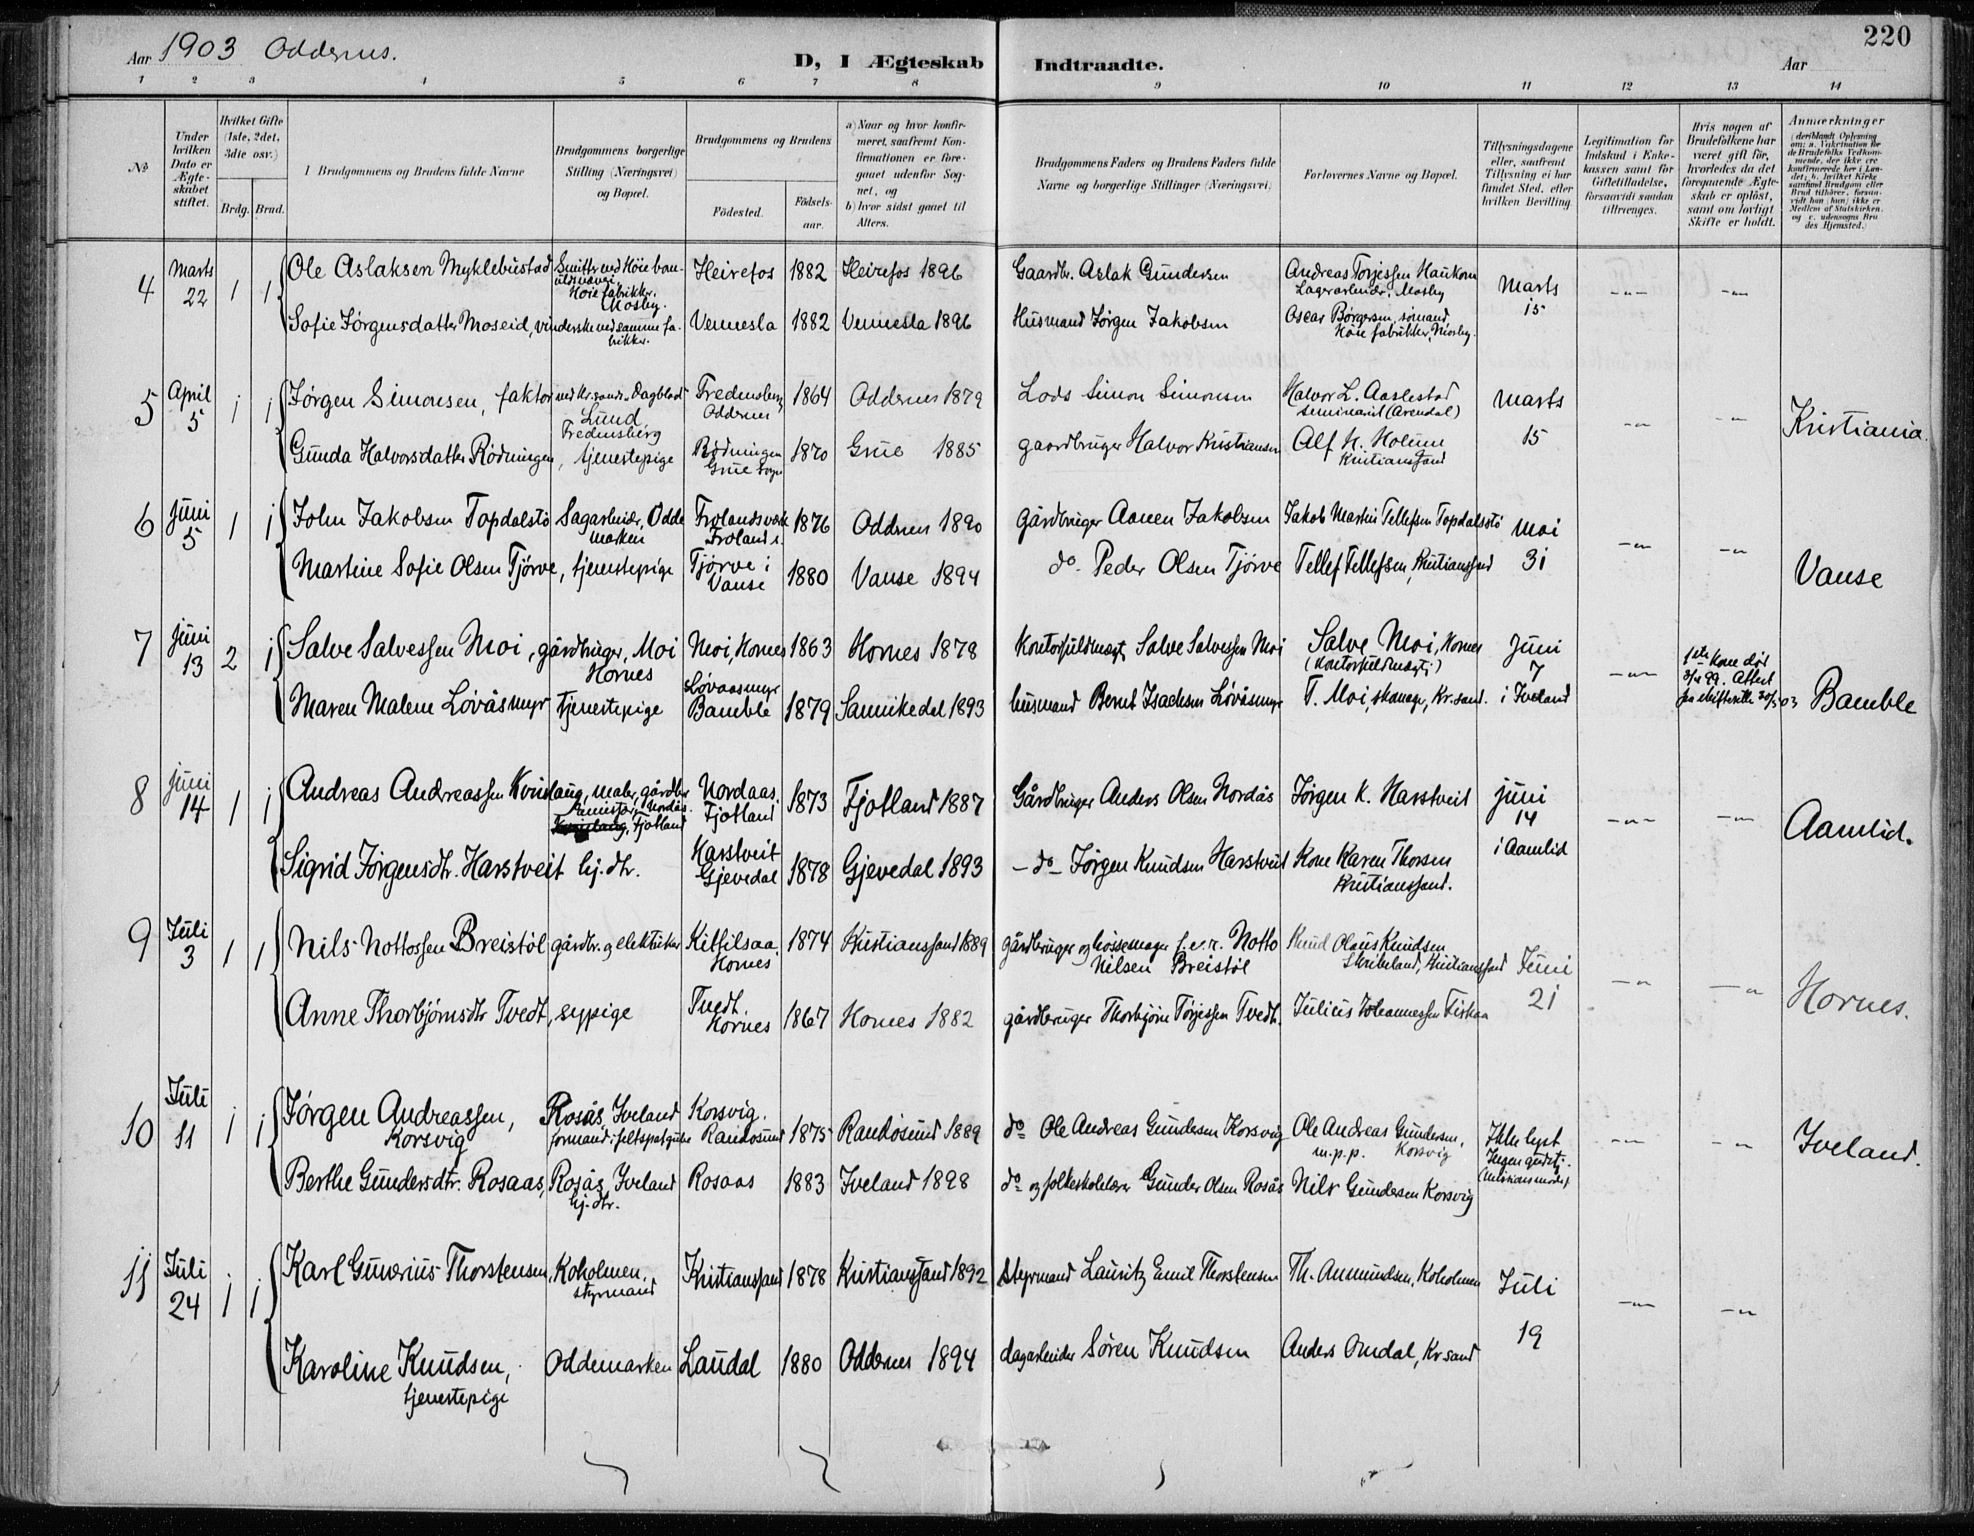 220
Aar 1903 Oddernes.
D, I Ægteskab Indtraadte.
Aar
1 2 3 4 5 6 7 8 9 10 11 12 13 14
No
Under hvilken Dato er Ægteskabet stiftet.
Hvilket Gifte (1ste, 2det, 3die osv.)
Brdg. Brud.
Brudgommens og Brudens fulde Navne
Brudgommens borgerlige Stilling (Næringsvei) og Bopæl.
Brudgommens og Brudens
Födested.
Födselsaar.
a) Naar og hvor konfirmeret, saafremt Konfirmationen er foregaaet udenfor Sognet, og
b) hvor sidst gaaet til Alters.
Brudgommens Faders og Brudens Faders fulde Navne og borgerlige Stillinger (Næringsvei)
Forlovernes Navne og Bopæl.
Tillysningsdagene eller, saafremt Tillysning ei har fundet Sted, efter hvilken Bevilling
Legitimation for Indskud i Enkekassen samt for Giftetilladelse, forsaavidt saadan tiltrænges.
Hvis nogen af Brudefolkene har været gift för, hvorledes da det foregaaende Ægteskab er oplöst, samt om lovligt Skifte er holdt.
Anmærkninger
4 Marts 22 1 1 Ole Aslaksen Myklebustad Heirefos 1882 Heirefos 1896 Gaardbr. Aslak Gundersen Andreas Torjessen Haukom Lagerarbeider, Mosby Marts 15
Høie fabrikker. Mosby.
Sofie Jørgensdatter Moseid, vinderske ved samme fabrikker. Vennesla 1882 Vennesla 1896 Husmand Jørgen Jakobsen Oscar Børgersen, sømand Høie fabrikker, Mosby.
5 April 5 1 1 Jørgen Simonsen, faktor ved Kr.sands Dagblad Lund Fredensberg Fredensberg Oddernes 1864 Oddernes 1879 Lods Simon Simonsen Halvor L. Aaslestad seminarist (Arendal) Marts 15 Kristiania.
Gunda Halvorsdatter Rödningen, tjenestepige Rödningen Grue sogn 1870 Grue 1885 gaardbruger Halvor Kristiansen Alf H. Holum Kristianssand
6 Juni 5 1 1 John Jakobsen Topdalstø Sagarbeider, Oddemarken Frolandsværk Froland s. 1876 Oddernes 1890 gårdbruger Aanen Jakobsen Jakob Martin Tellefsen Topdalsstö Mai 31
Martine Sofie Olsen Tjörve, tjenestepige Tjörve i Vanse 1880 Vanse 1894 do. Peder Olsen Tjörve Tellef Tellefsen, Kristianssand Vanse
7 Juni 13 2 1 Salve Salvessen Moi, gårdbruger, Moi Hornes Moi, Hornes 1863 Hornes 1878 Kontorfuldmægt. Salve Salvessen Moi Salve Moi, Hornes (Kontorfuldmægt.) Juni 7 i Iveland
Maren Malene Lövåsmyr tjenestepige Lövaasmyr Bamble 1879 Sannikedal 1893 husmand Bernt Isachsen Lövåsmyr T. Moi, skomager, Kr.sand. Bamble
8 Juni 14 1 1 Andreas Andreassen Kvinlaug, maler, gårdbr. Nordås Fjotland Nordaas Fjotland 1873 Fjotland 1887 Gårdbruger Anders Olsen Nordås Jørgen K. Harstveit juni 14 i Aamlid Aamlid.
Sigrid Jørgensdtr. Harstveit hj. dtr. Harstveit Gjevedal 1878 Gjevedal 1893 do Jørgen Knudsen Harstveit Kone Karen Thorsen Kristianssand.
9 Juli 3 1 1 Nils Nottossen Breistöl gårdbr. og elektriker Kittilsaa Hornes 1874 Kristianssand 1889 gårdbruger og Notto Nilsen Breistöl Knud Olaus Knudsen Skribeland, Kristianssand Juni 21 Hornes.
Anne Thorbjörnsdtr Tvedt, sypige Tvedt. Hornes 1867 Hornes 1882 gårdbruger Thorbjörn Torjessen Tvedt. Julius Johannessen Fiskaa
10 Juli 11 1 1 Jørgen Andreassen, Korsvig Rosås, Iveland formand i feltspatgrube Korsvig. Randøsund 1875 Randösund 1889 do Ole Andreas Gundersen Korsvig Ole Andreas Gundersen, m.p.p. Korsvig Ikke lyst Ingen gudstj. (Missionsmøde) Iveland.
Berthe Gundersdtr. Rosaas, Rosås, Iveland hj. dtr. Rosaas 1883 Iveland 1898 do og folkeskolelærer Gunder Olsen Rosås Nils Gundersen Korsvig
11 Juli 24 1 1 Karl Gunerius Thorstensen, Koholmen. styrmand Kristianssand 1878 Kristianssand 1892 Styrmand Lauritz Emil Thorstensen Th. Anmundsen, Koholmen Juli 19
Karoline Knudsen, tjenestepige Oddemarken Laudal 1880 Oddernes 1894 dagarbeider Søren Knudsen Anders Omdal, Kr.sand